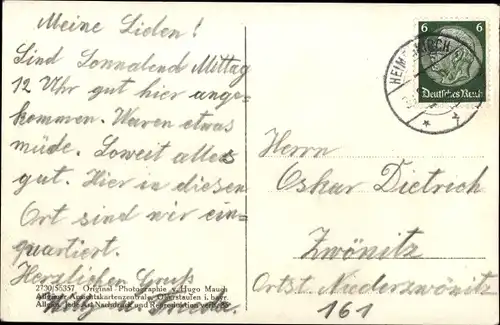 Meine Lieben!
Sind Sonnabend Mittag
12 Uhr gut hier ange-
kommen. Waren etwas
müde. Soweit alles
gut. Hier in diesen
Ort sind wir ein-
quartiert.
Herzlichen Gruß
2730/55357 Original Photographie v. Hugo Mauch
Allgäuer Ansichtskartenzentrale, Oberstaufen i. bayr.
6 6
Deutsches Reich
Herrn
Oskar Dietrich
Zwönitz
Ortst. Niederzwönitz
161